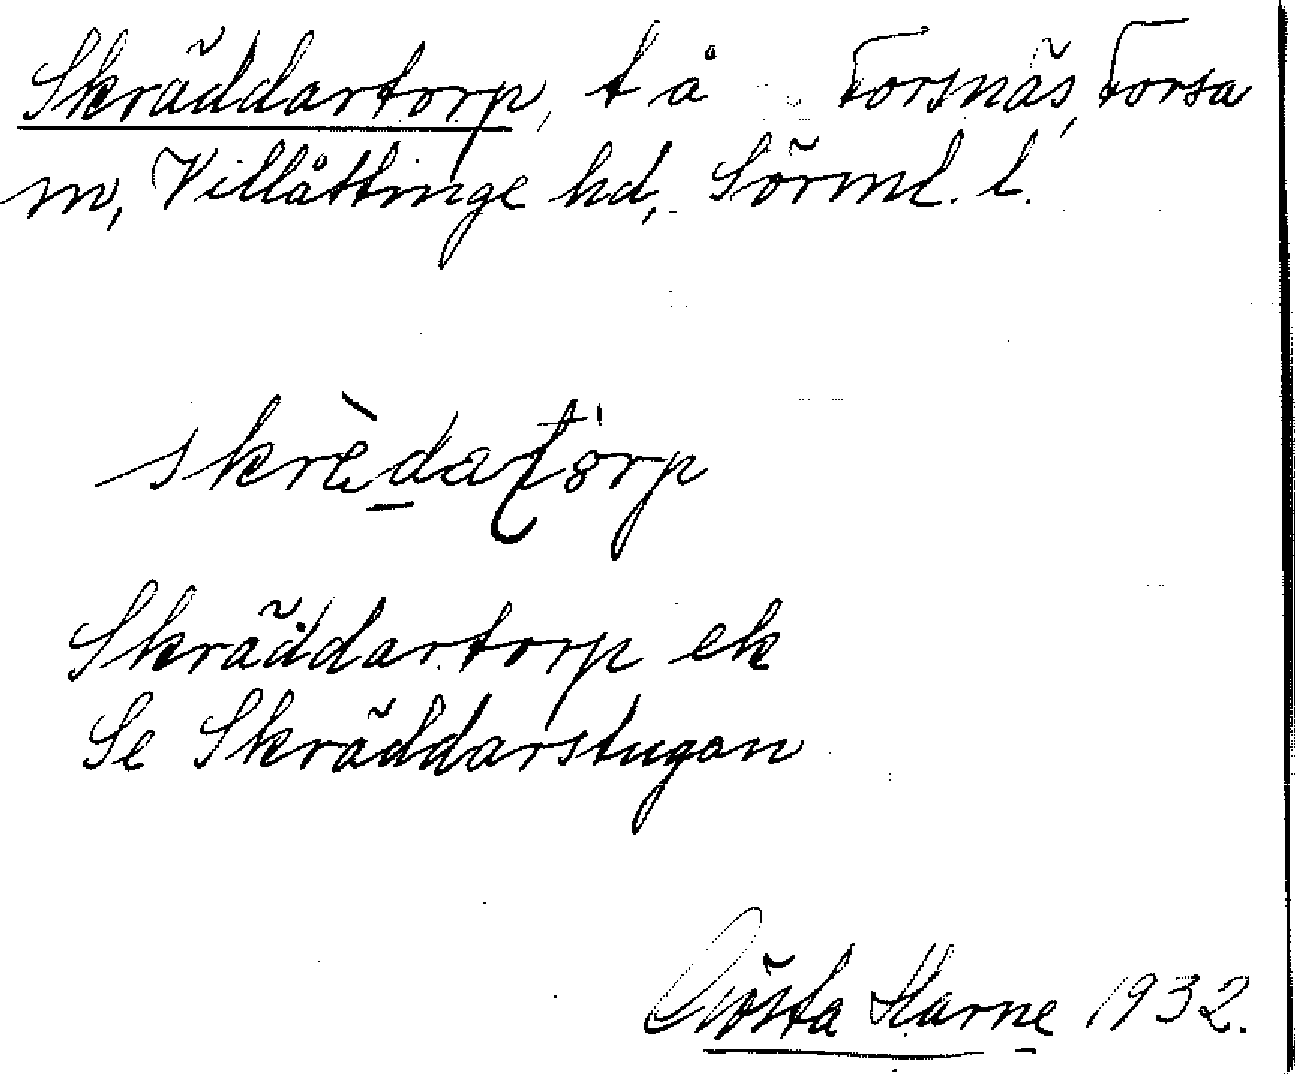 Skräddartorp, t å Forsnäs, Forssa
sn, Villåttinge hd, Sörml. l.
skrèdatorp
Skräddartorp ek
Se Skräddarstugan
Gösta Harne 1932.